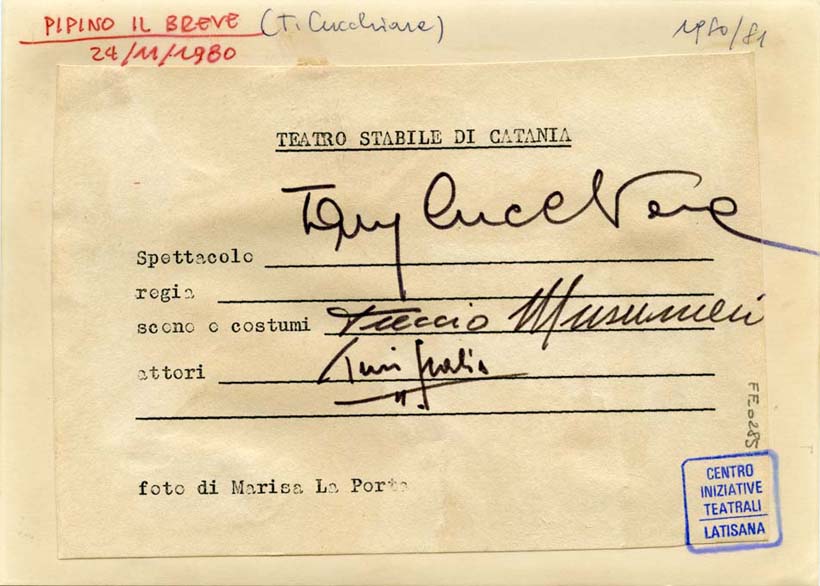 PIPINO IL BREVE (T. Cucchiara) 1980/81
24/11/1980
TEATRO STABILE DI CATANIA
Tony Cucchiara
Spettacolo
regia
scene e costumi Tuccio Musumeci
attori Turi Gialia
foto di Marisa La Porta
FE0285
CENTRO
INIZIATIVE
TEATRALI
LATISANA